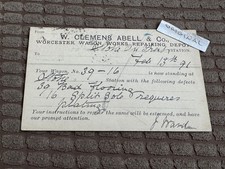 From
W. CLEMENS ABELL & Co.
WORCESTER WAGON WORKS REPAIRING DEPOT
STATION
Feb 13th 91
Your Wagon, No. 39-16 is now standing at
Station with the following defects
Bad Flooring
Split Sole requires
plating
Your instructions to repair the same will be esteemed, and have
our prompt attention.